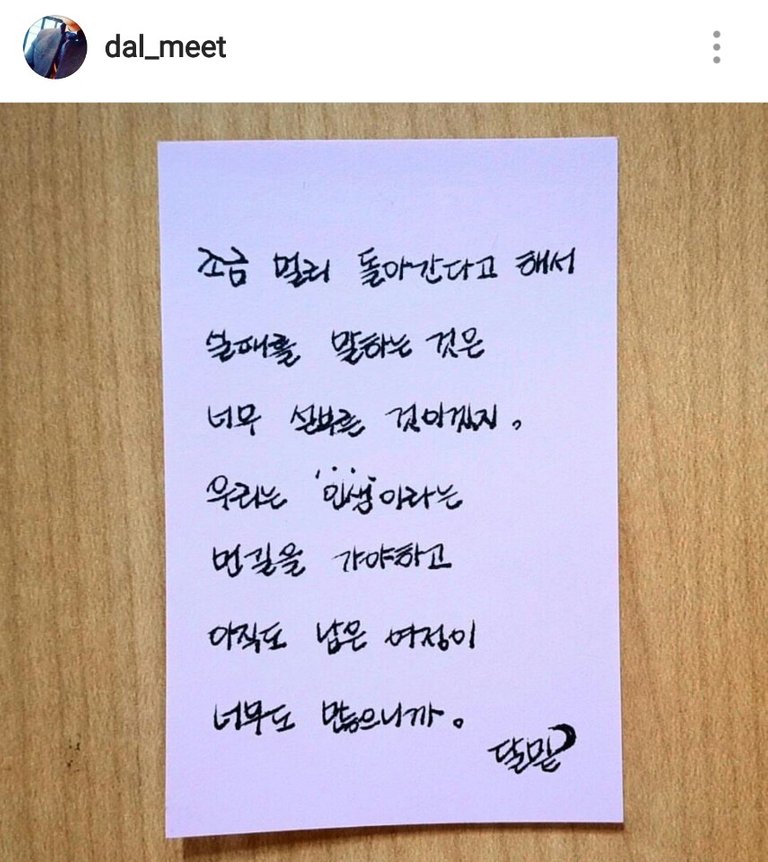 dal_meet
조금 멀리 돌아간다고 해서
실패를 말하는 것은
너무 섣부른 것이겠지.
우리는 '인생'이라는
먼길을 가야하고
아직도 남은 여정이
너무도 많으니까.
달밑